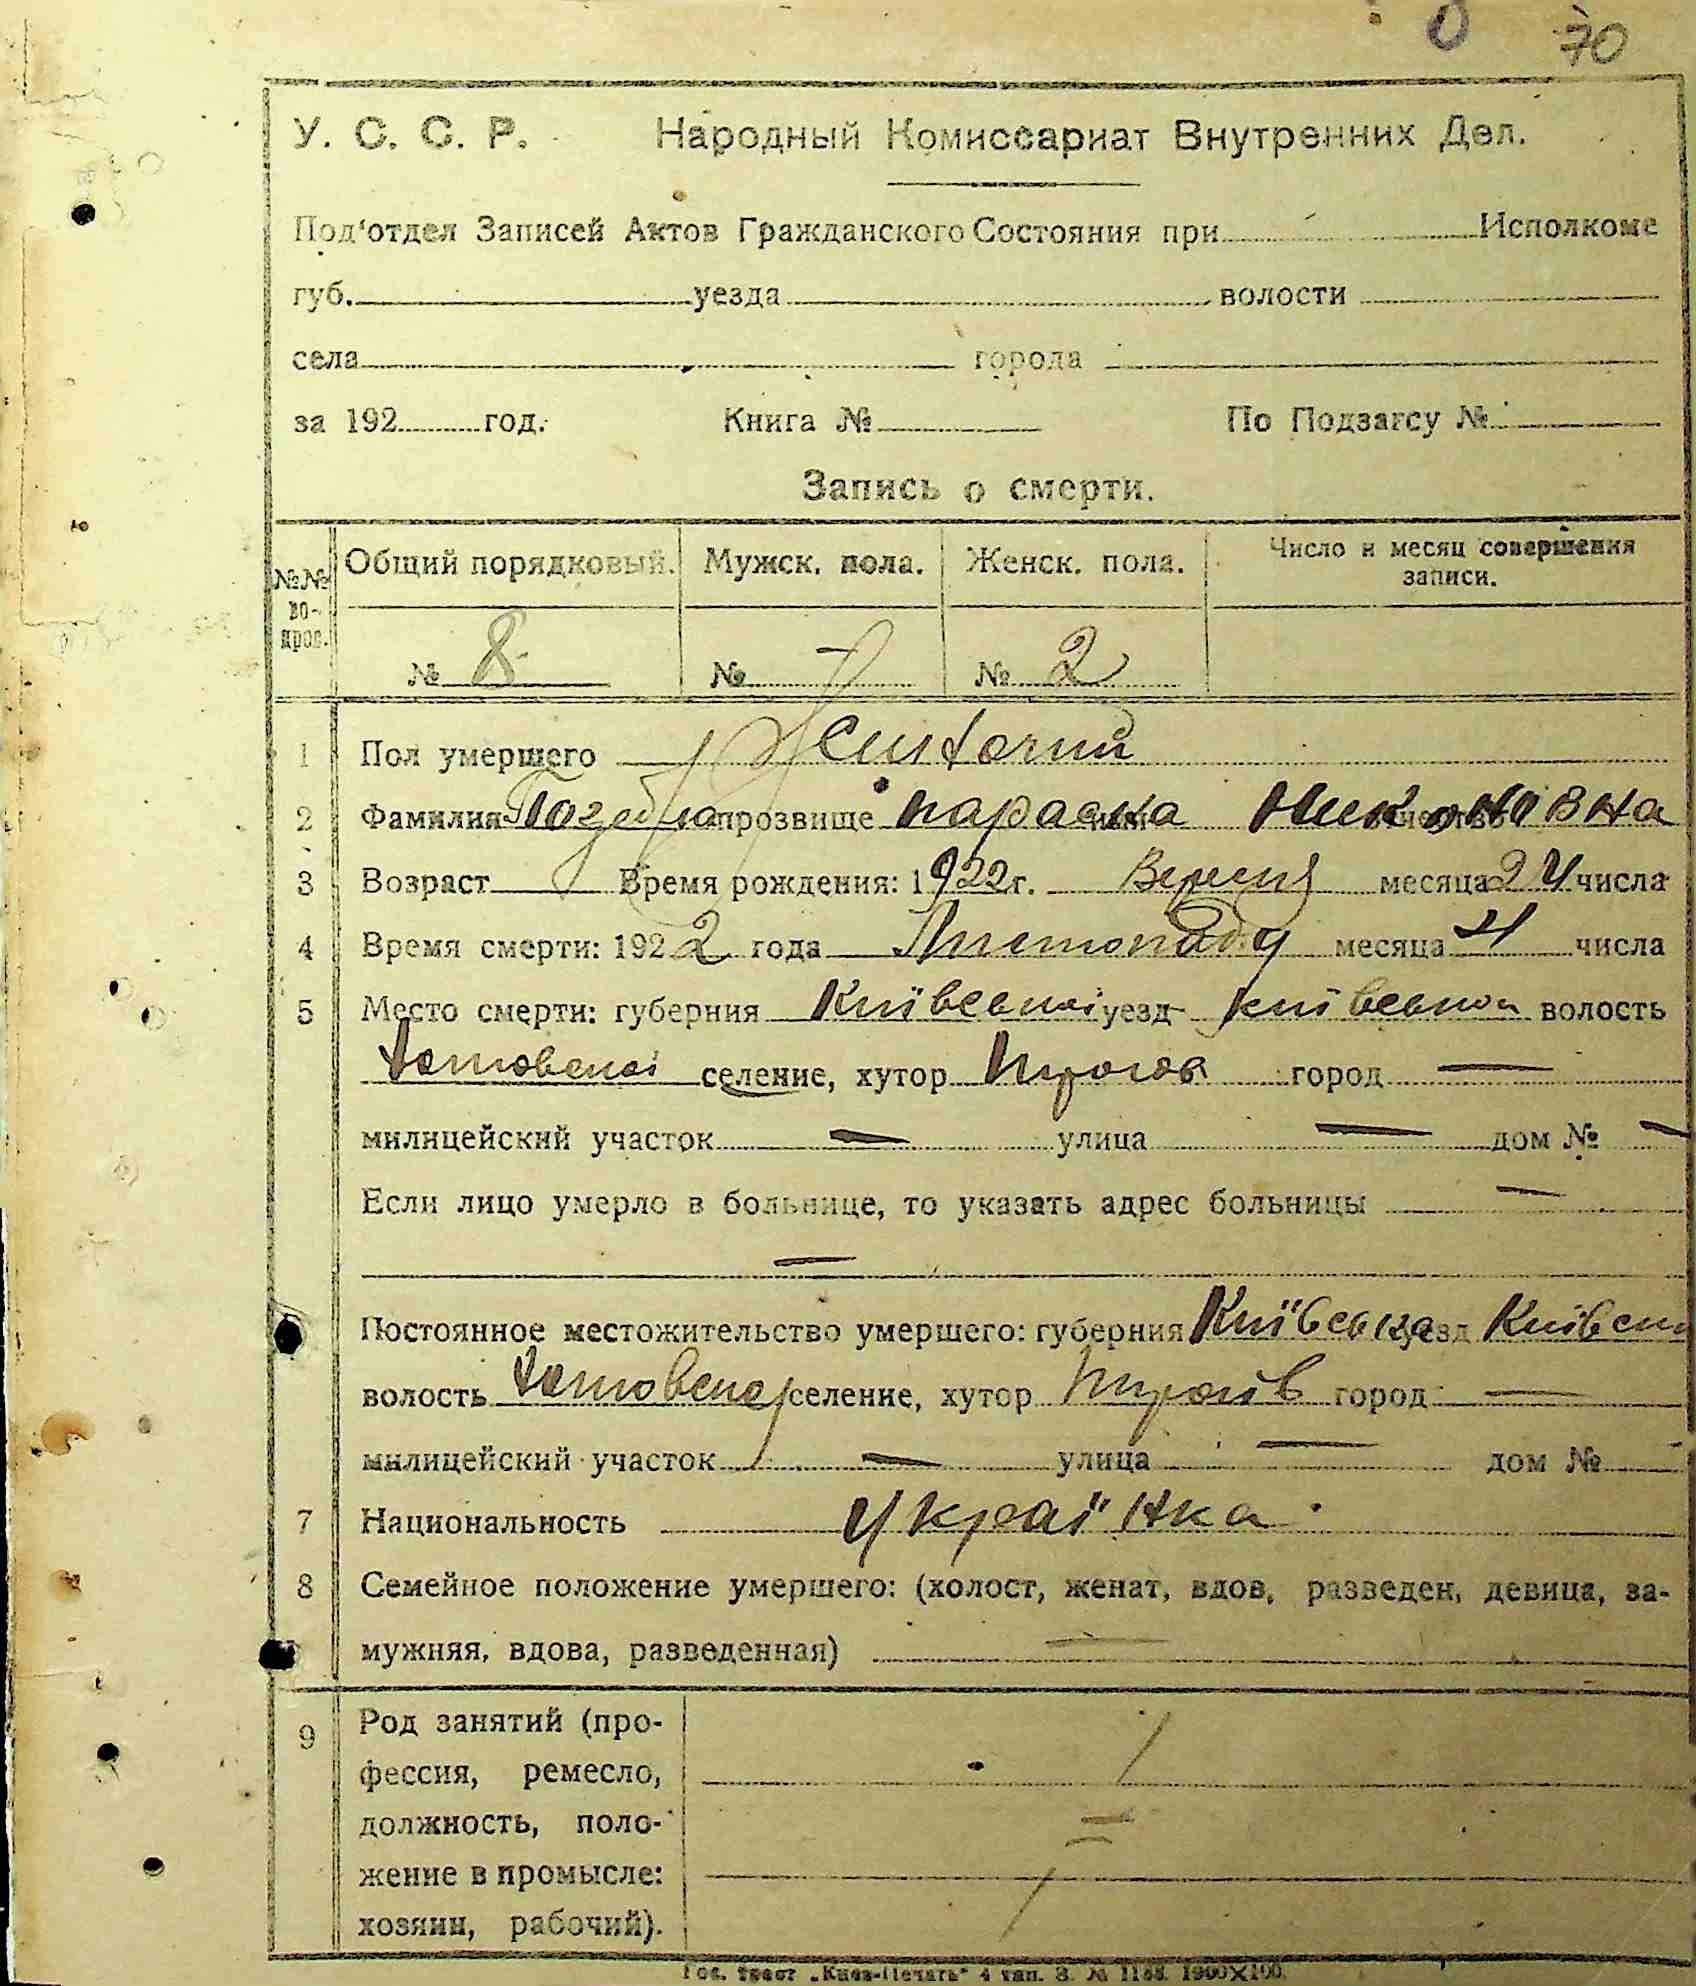 70
У. С. С. Р. Народный Комиссариат Внутренних Дел.
Под'отдел Записей Актов Гражданского Состояния при Исполкоме
губ. уезда волости
села города
за 192 год. Книга № По Подзагсу №
Запись о смерти.
№№ во-прос. Общий порядковый. Мужск. пола. Женск. пола. Число и месяц совершения записи.
№ 8 № — № 2
1 Пол умершего
2 Фамилия прозвище Параска Никоновна
3 Возраст Время рождения: 1922 г. Вересня месяца 24 числа
4 Время смерти: 1922 года Листопаду месяца 4 числа
5 Место смерти: губерния Київської уезд Київської волость
селение, хутор Пирогов город —
милицейский участок — улица — дом № —
Если лицо умерло в больнице, то указать адрес больницы —
—
Постоянное местожительство умершего: губерния Київська уезд
волость селение, хутор Пирогів город —
милицейский участок — улица — дом № —
7 Национальность Українка
8 Семейное положение умершего: (холост, женат, вдов, разведен, девица, за-
мужняя, вдова, разведенная) —
9 Род занятий (про-
фессия, ремесло,
должность, поло-
жение в промысле:
хозяин, рабочий).
Гос. трест „Киев-Печать" 4 тип. З. № 1000×100.